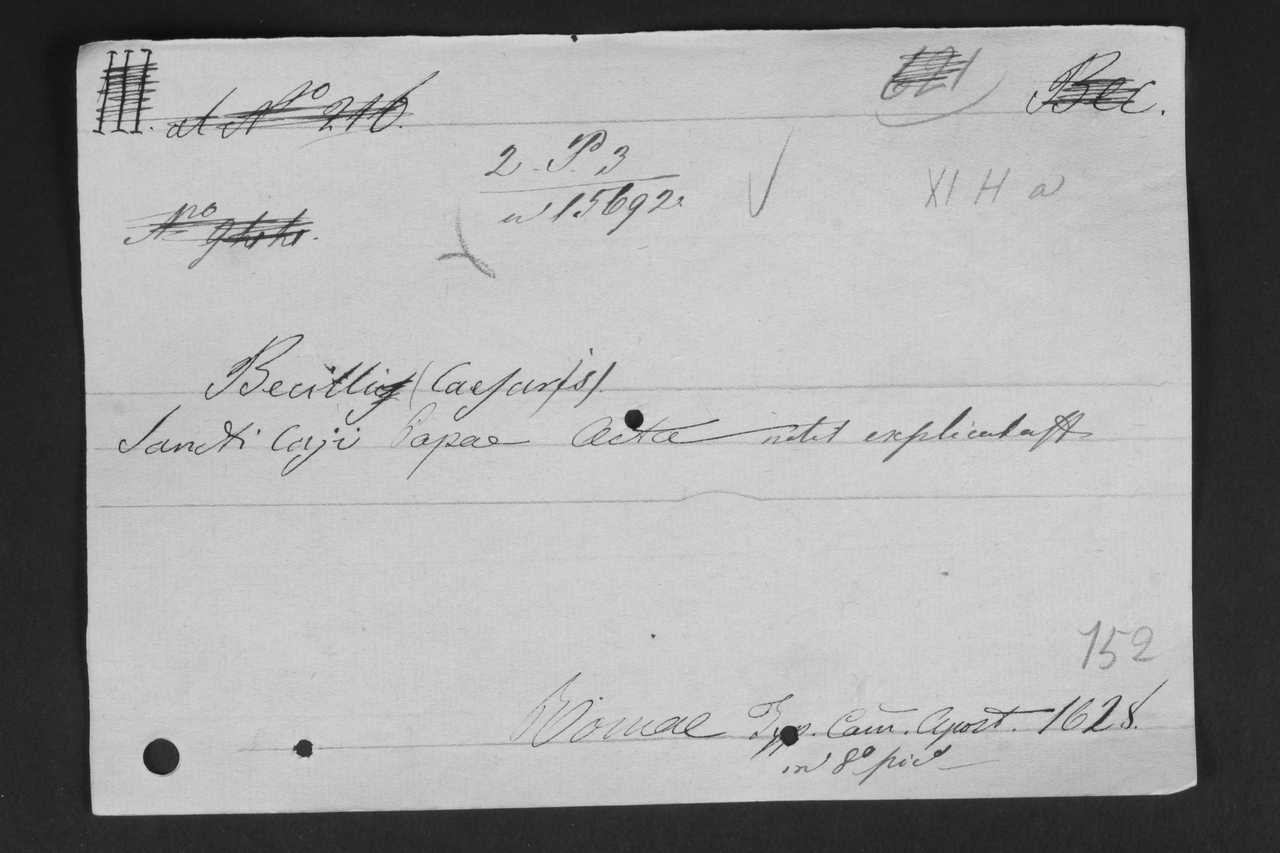 III. at Nº 216.
621
Bec.
2. P. 3
n 15692
XI H a
Nº
Becilli (Caesaris).
Sancti Caji Papae Acta explicata
152
Romae Typ. Cam. Apost. 1628.
in 8º